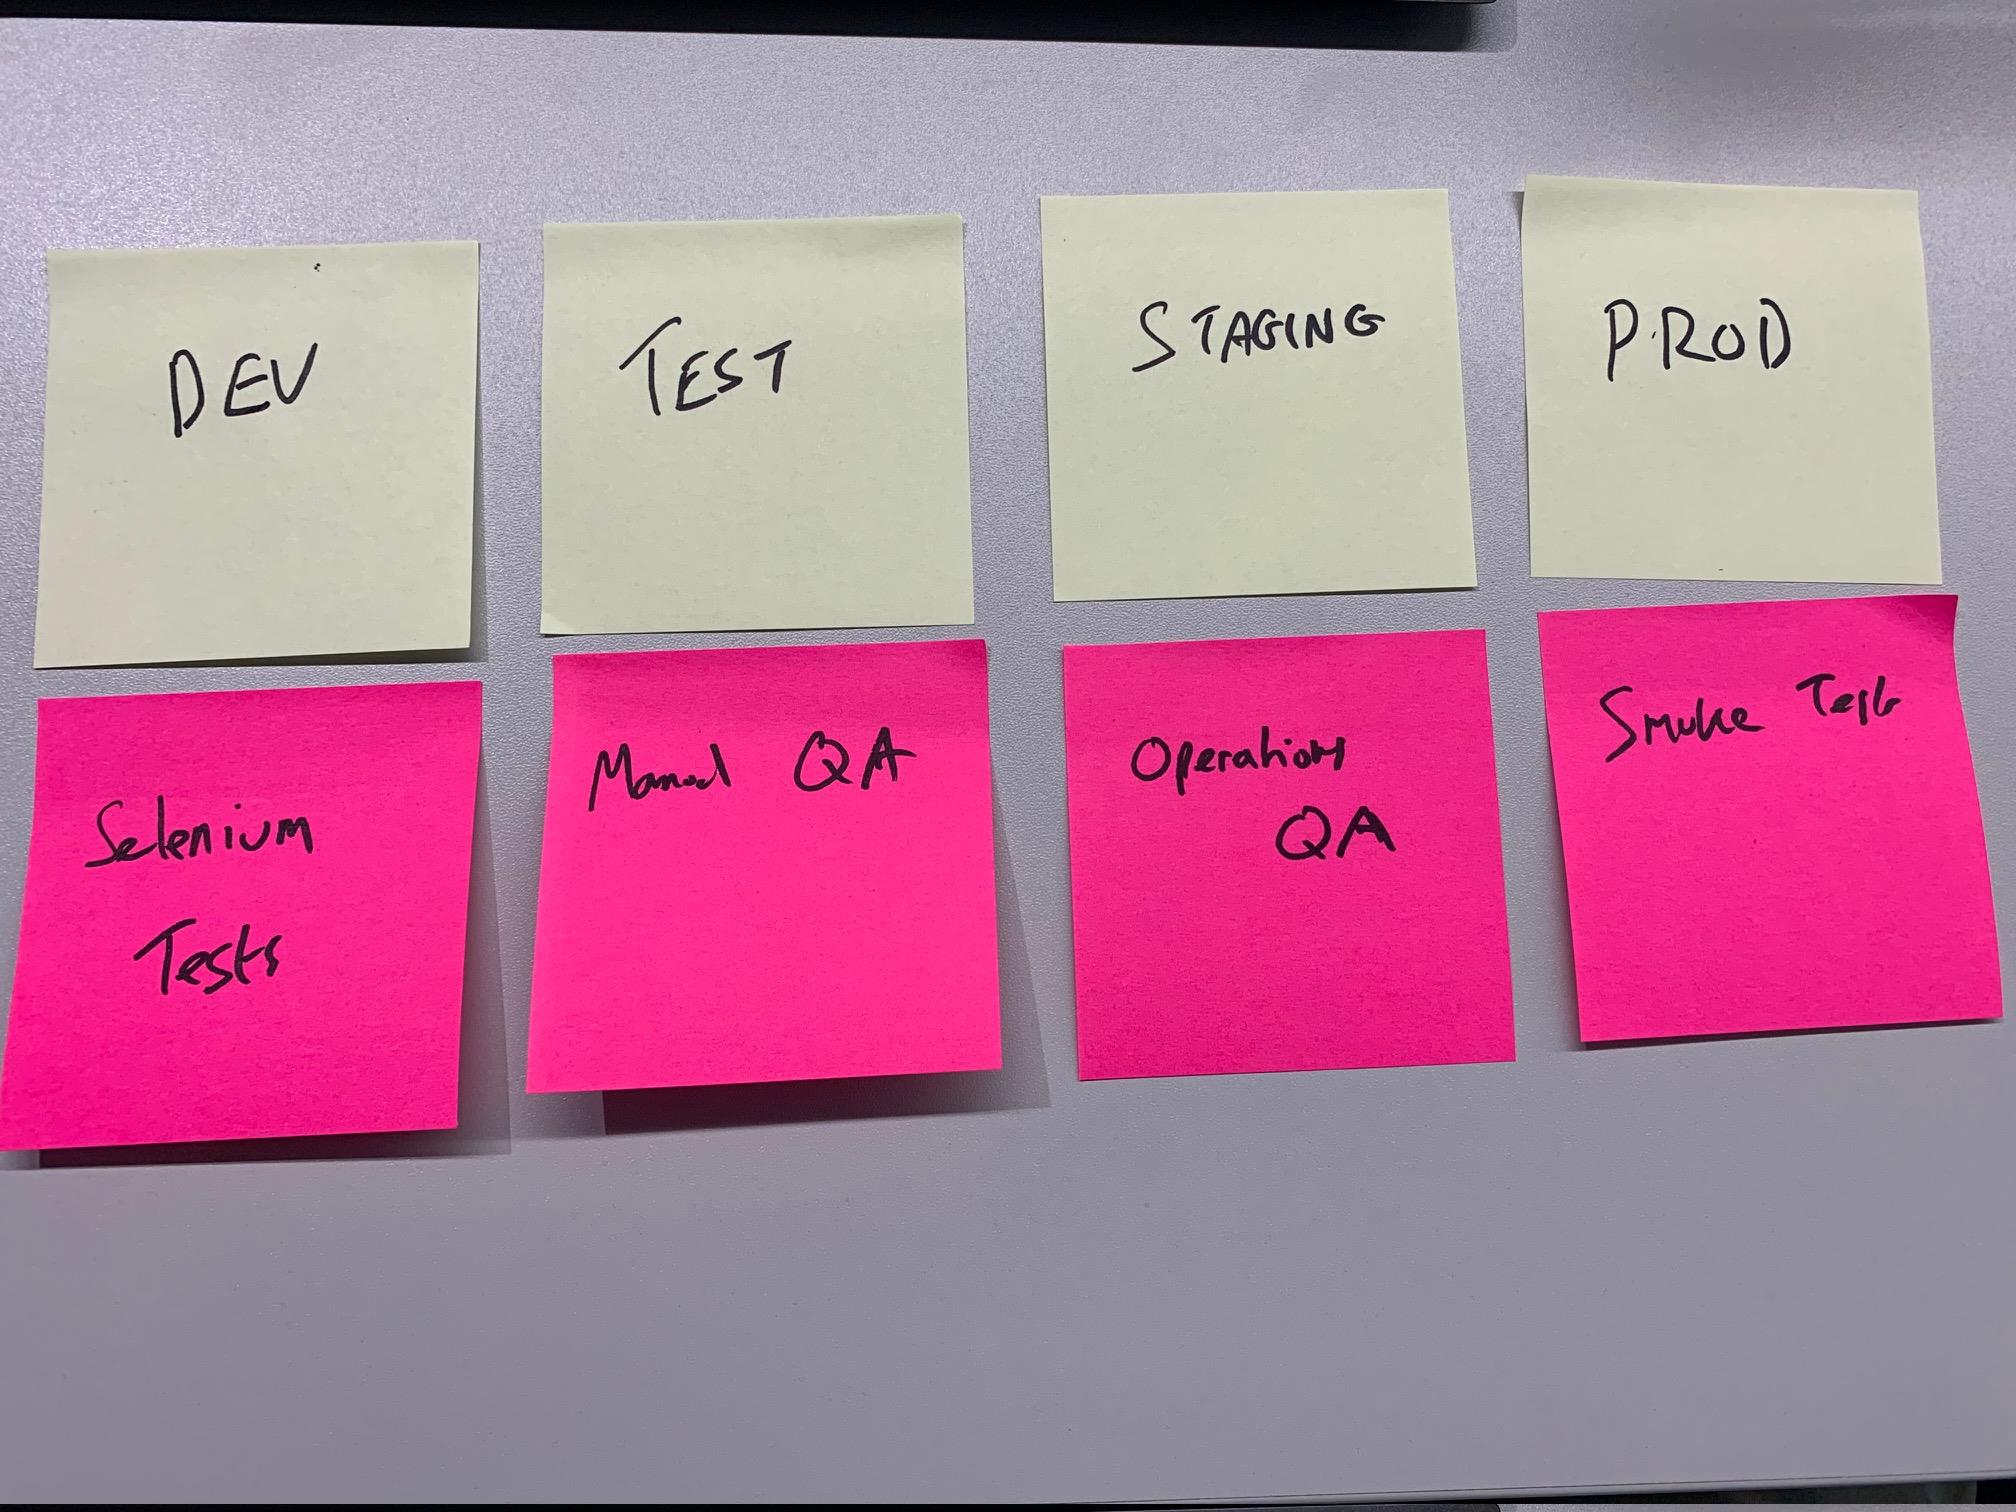 DEV
TEST
STAGING
PROD
Selenium
Tests
Manual QA
Operations
QA
Smoke Tests